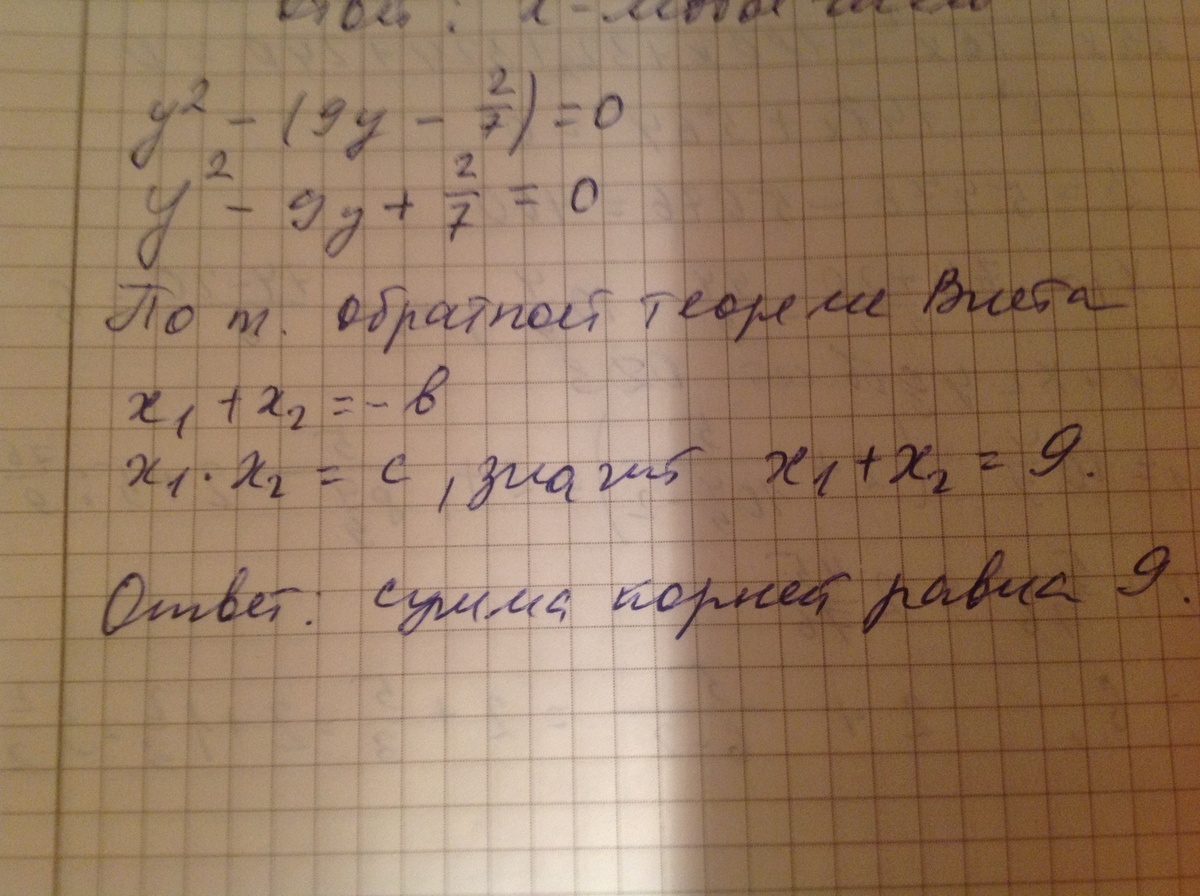 y² - (9y - 2/7) = 0
y² - 9y + 2/7 = 0
По т. обратной теореме Виета
x₁ + x₂ = - в
x₁ · x₂ = c, значит x₁ + x₂ = 9.
Ответ: сумма корней равна 9.